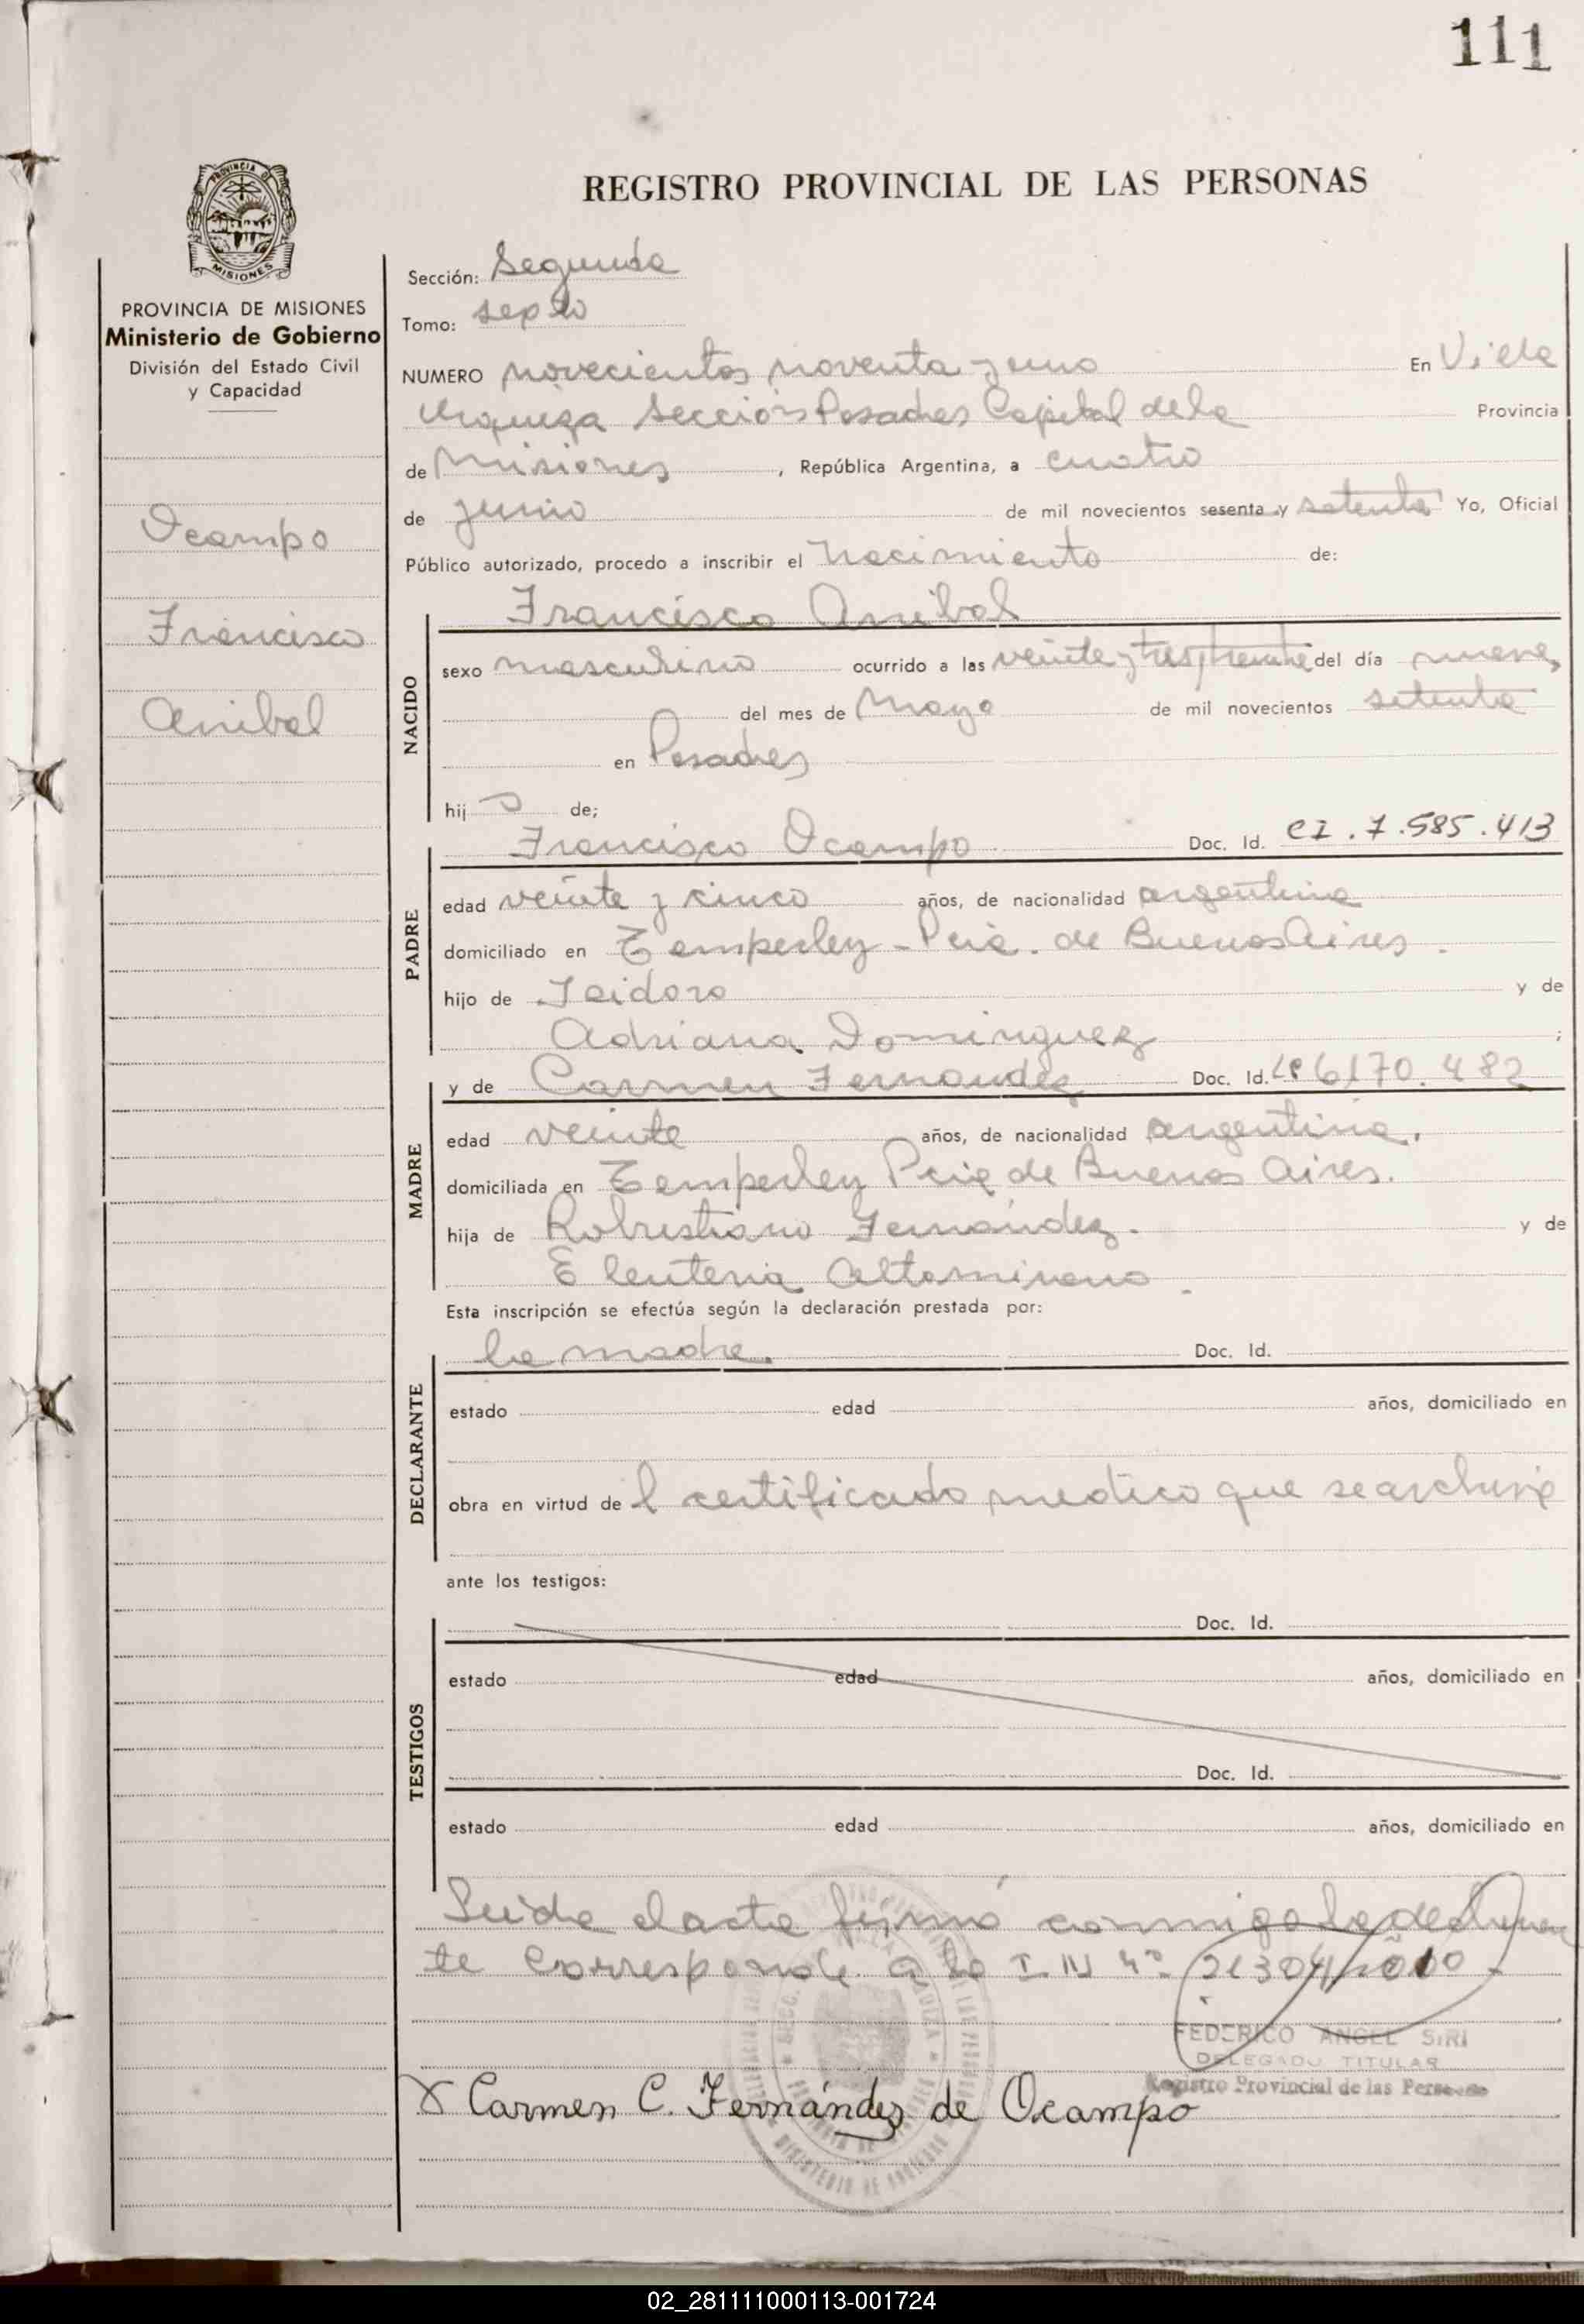 111
PROVINCIA DE
MISIONES
REGISTRO PROVINCIAL DE LAS PERSONAS
PROVINCIA DE MISIONES
Ministerio de Gobierno
División del Estado Civil
y Capacidad
Ocampo
Francisco
Anibal
Sección: Segunda
Tomo: sexto
NUMERO novecientos noventa y uno En Villa
Urquiza Sección Posadas Capital de la Provincia
de Misiones, República Argentina, a cuatro
de junio de mil novecientos sesenta y setenta Yo, Oficial
Público autorizado, procedo a inscribir el nacimiento de:
Francisco Anibal
NACIDO
sexo masculino ocurrido a las veinte y tres, treinta del día nueve,
del mes de Mayo de mil novecientos setenta
en Posadas
hijo de;
Francisco Ocampo Doc. Id. CI. 7.585.413
PADRE
edad veinte y cinco años, de nacionalidad argentina
domiciliado en Temperley - Pcia. de Buenos Aires.
hijo de Isidoro y de
Adriana Dominguez ;
y de Carmen Fernandez Doc. Id. 6170.482
MADRE
edad veinte años, de nacionalidad argentina.
domiciliada en Temperley Pcia de Buenos Aires.
hija de Robustiano Fernández. y de
Eleuteria Altamirano.
Esta inscripción se efectúa según la declaración prestada por:
la madre. Doc. Id.
DECLARANTE
estado edad años, domiciliado en
obra en virtud del certificado medico que se archiva
ante los testigos:
Doc. Id.
TESTIGOS
estado edad años, domiciliado en
Doc. Id.
estado edad años, domiciliado en
Leida el acta firmó conmigo la declaran
te Corresponde a la
FEDERICO ANGEL SIRI
DELEGADO TITULAR
Registro Provincial de las Personas
X Carmen C. Fernández de Ocampo
02_281111000113-001724